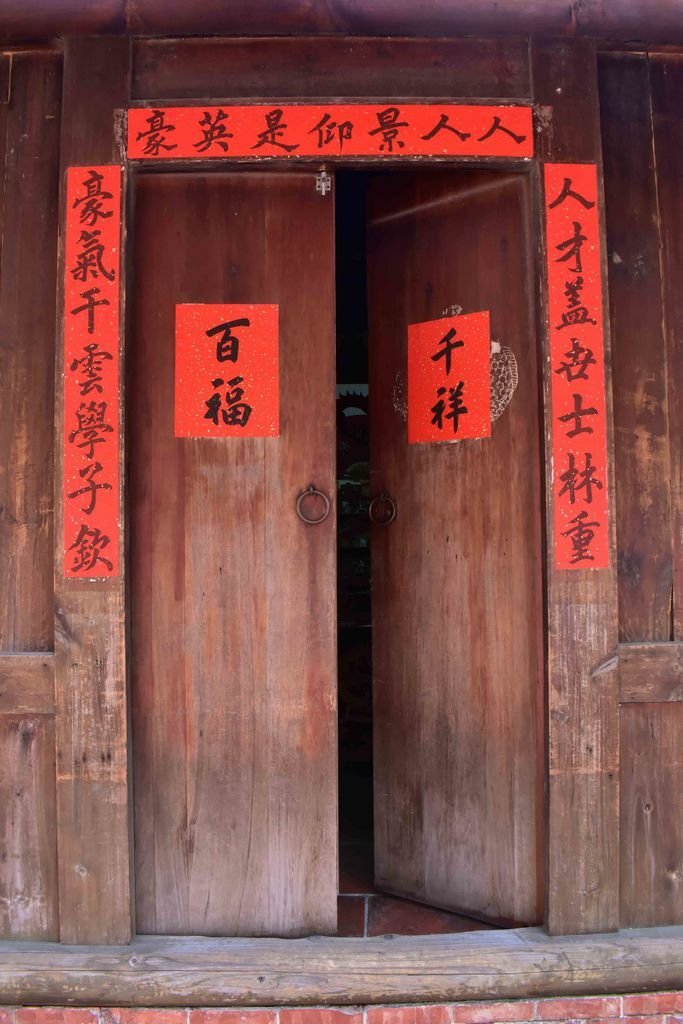 人人景仰是英豪
人才盖世士林重
豪氣干雲學子欽
千祥
百福